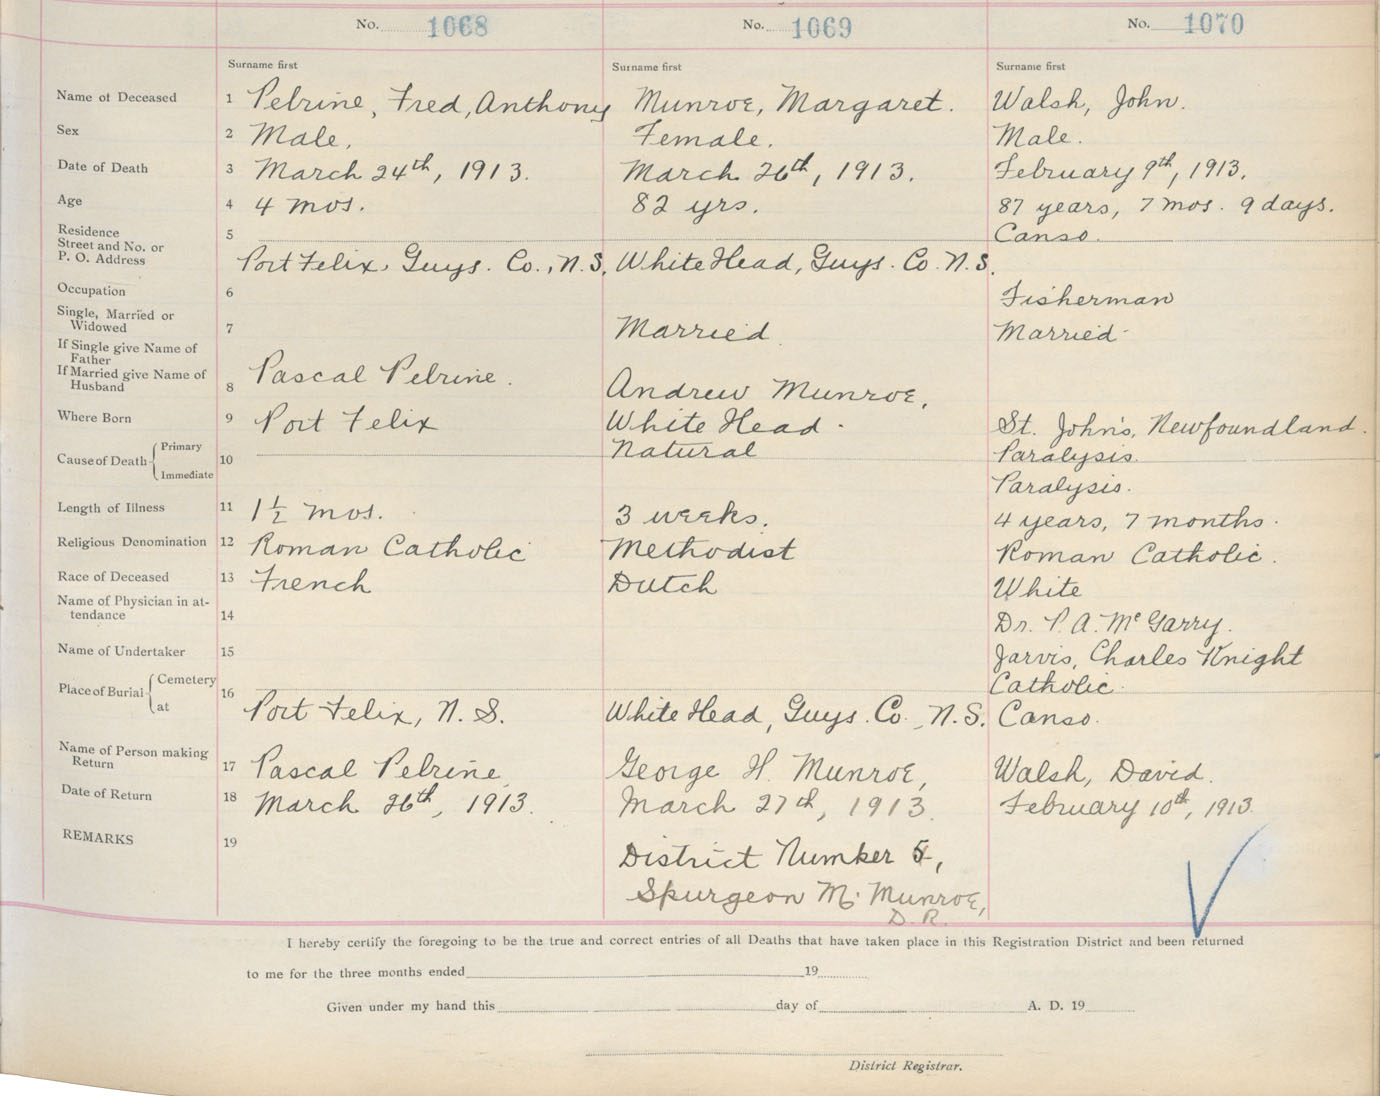 No. 1068 No. 1069 No. 1070
Surname first Surname first Surname first
Name of Deceased 1 Pelrine, Fred, Anthony Munroe, Margaret. Walsh, John.
Sex 2 Male. Female. Male.
Date of Death 3 March 24th, 1913. March 26th, 1913. February 9th, 1913.
Age 4 4 mos. 82 yrs. 87 years, 7 mos. 9 days.
Residence
Street and No. or 5 Canso.
P. O. Address Port Felix, Guys. Co., N.S. White Head, Guys. Co. N.S.
Occupation 6 Fisherman
Single, Married or
Widowed 7 Married. Married
If Single give Name of
Father
If Married give Name of Pascal Pelrine.
Husband 8 Andrew Munroe,
Where Born 9 Port Felix White Head. St. John's, Newfoundland.
Primary Natural Paralysis.
Cause of Death 10
Immediate Paralysis.
Length of Illness 11 1 1/2 mos. 3 weeks. 4 years, 7 months.
Religious Denomination 12 Roman Catholic Methodist Roman Catholic.
Race of Deceased 13 French Dutch White
Name of Physician in at-
tendance 14 Dr. P. A. McGarry.
Name of Undertaker 15 Jarvis, Charles Knight
Cemetery Catholic.
Place of Burial 16
at Port Felix, N. S. White Head, Guys. Co., N.S. Canso.
Name of Person making
Return 17 Pascal Pelrine George H. Munroe, Walsh, David.
Date of Return 18 March 26th, 1913. March 27th, 1913. February 10th, 1913.
REMARKS 19
District Numker 5,
Spurgeon M. Munroe,
D. R.
I hereby certify the foregoing to be the true and correct entries of all Deaths that have taken place in this Registration District and been returned
to me for the three months ended 19
Given under my hand this day of A. D. 19
District Registrar.